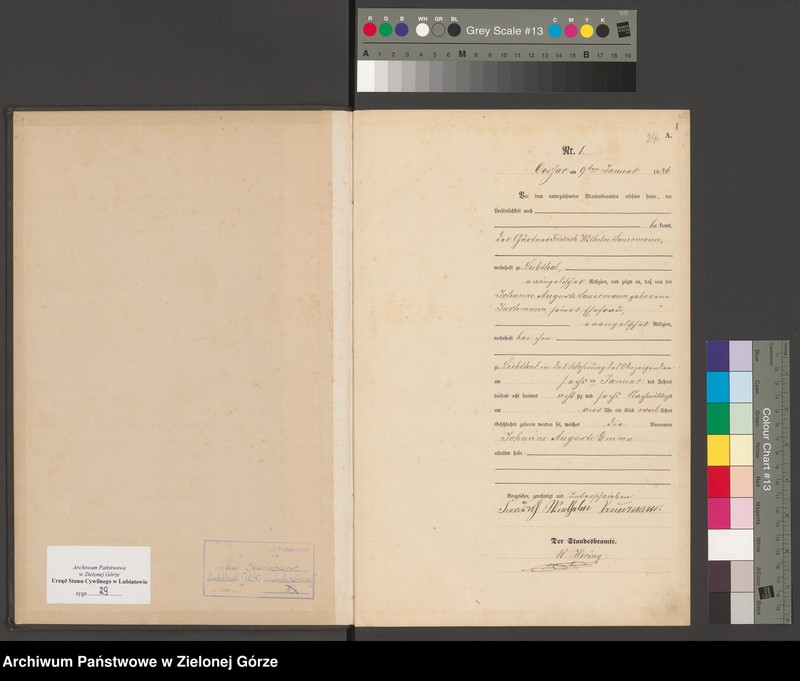 R G B WH GR BL Grey Scale #13 C M Y K
A 1 2 3 4 5 6 M 8 9 10 11 12 13 14 15 B 17 18 19
24 A.
Nr. 1.
am 9ten Januar 1886
Vor dem unterzeichneten Standesbeamten erschien heute, der
Persönlichkeit nach
bekannt,
der Gärtner Friedrich Wilhelm
wohnhaft zu Liebthal,
evangelischer Religion, und zeigte an, daß von der
Johanne Auguste geborene
seiner Ehefrau,
evangelischer Religion,
wohnhaft bei ihm
zu Liebthal in der Wohnung des Anzeigenden
am sechsten Januar des Jahres
tausend acht hundert achtzig und sechs Nachmittags
um vier Uhr ein Kind weiblichen
Geschlechts geboren worden sei, welches die Vornamen
Johanne Auguste Emma
erhalten habe
Vorgelesen, genehmigt und unterschrieben
Wilhelm
Der Standesbeamte.
W. Hering
Archiwum Państwowe
w Zielonej Górze
Urząd Stanu Cywilnego w Lubiatowie
sygn 29
Colour Chart #13
Blue
Cyan
Green
Yellow
Red
Magenta
White
3/Color
Black
Archiwum Państwowe w Zielonej Górze